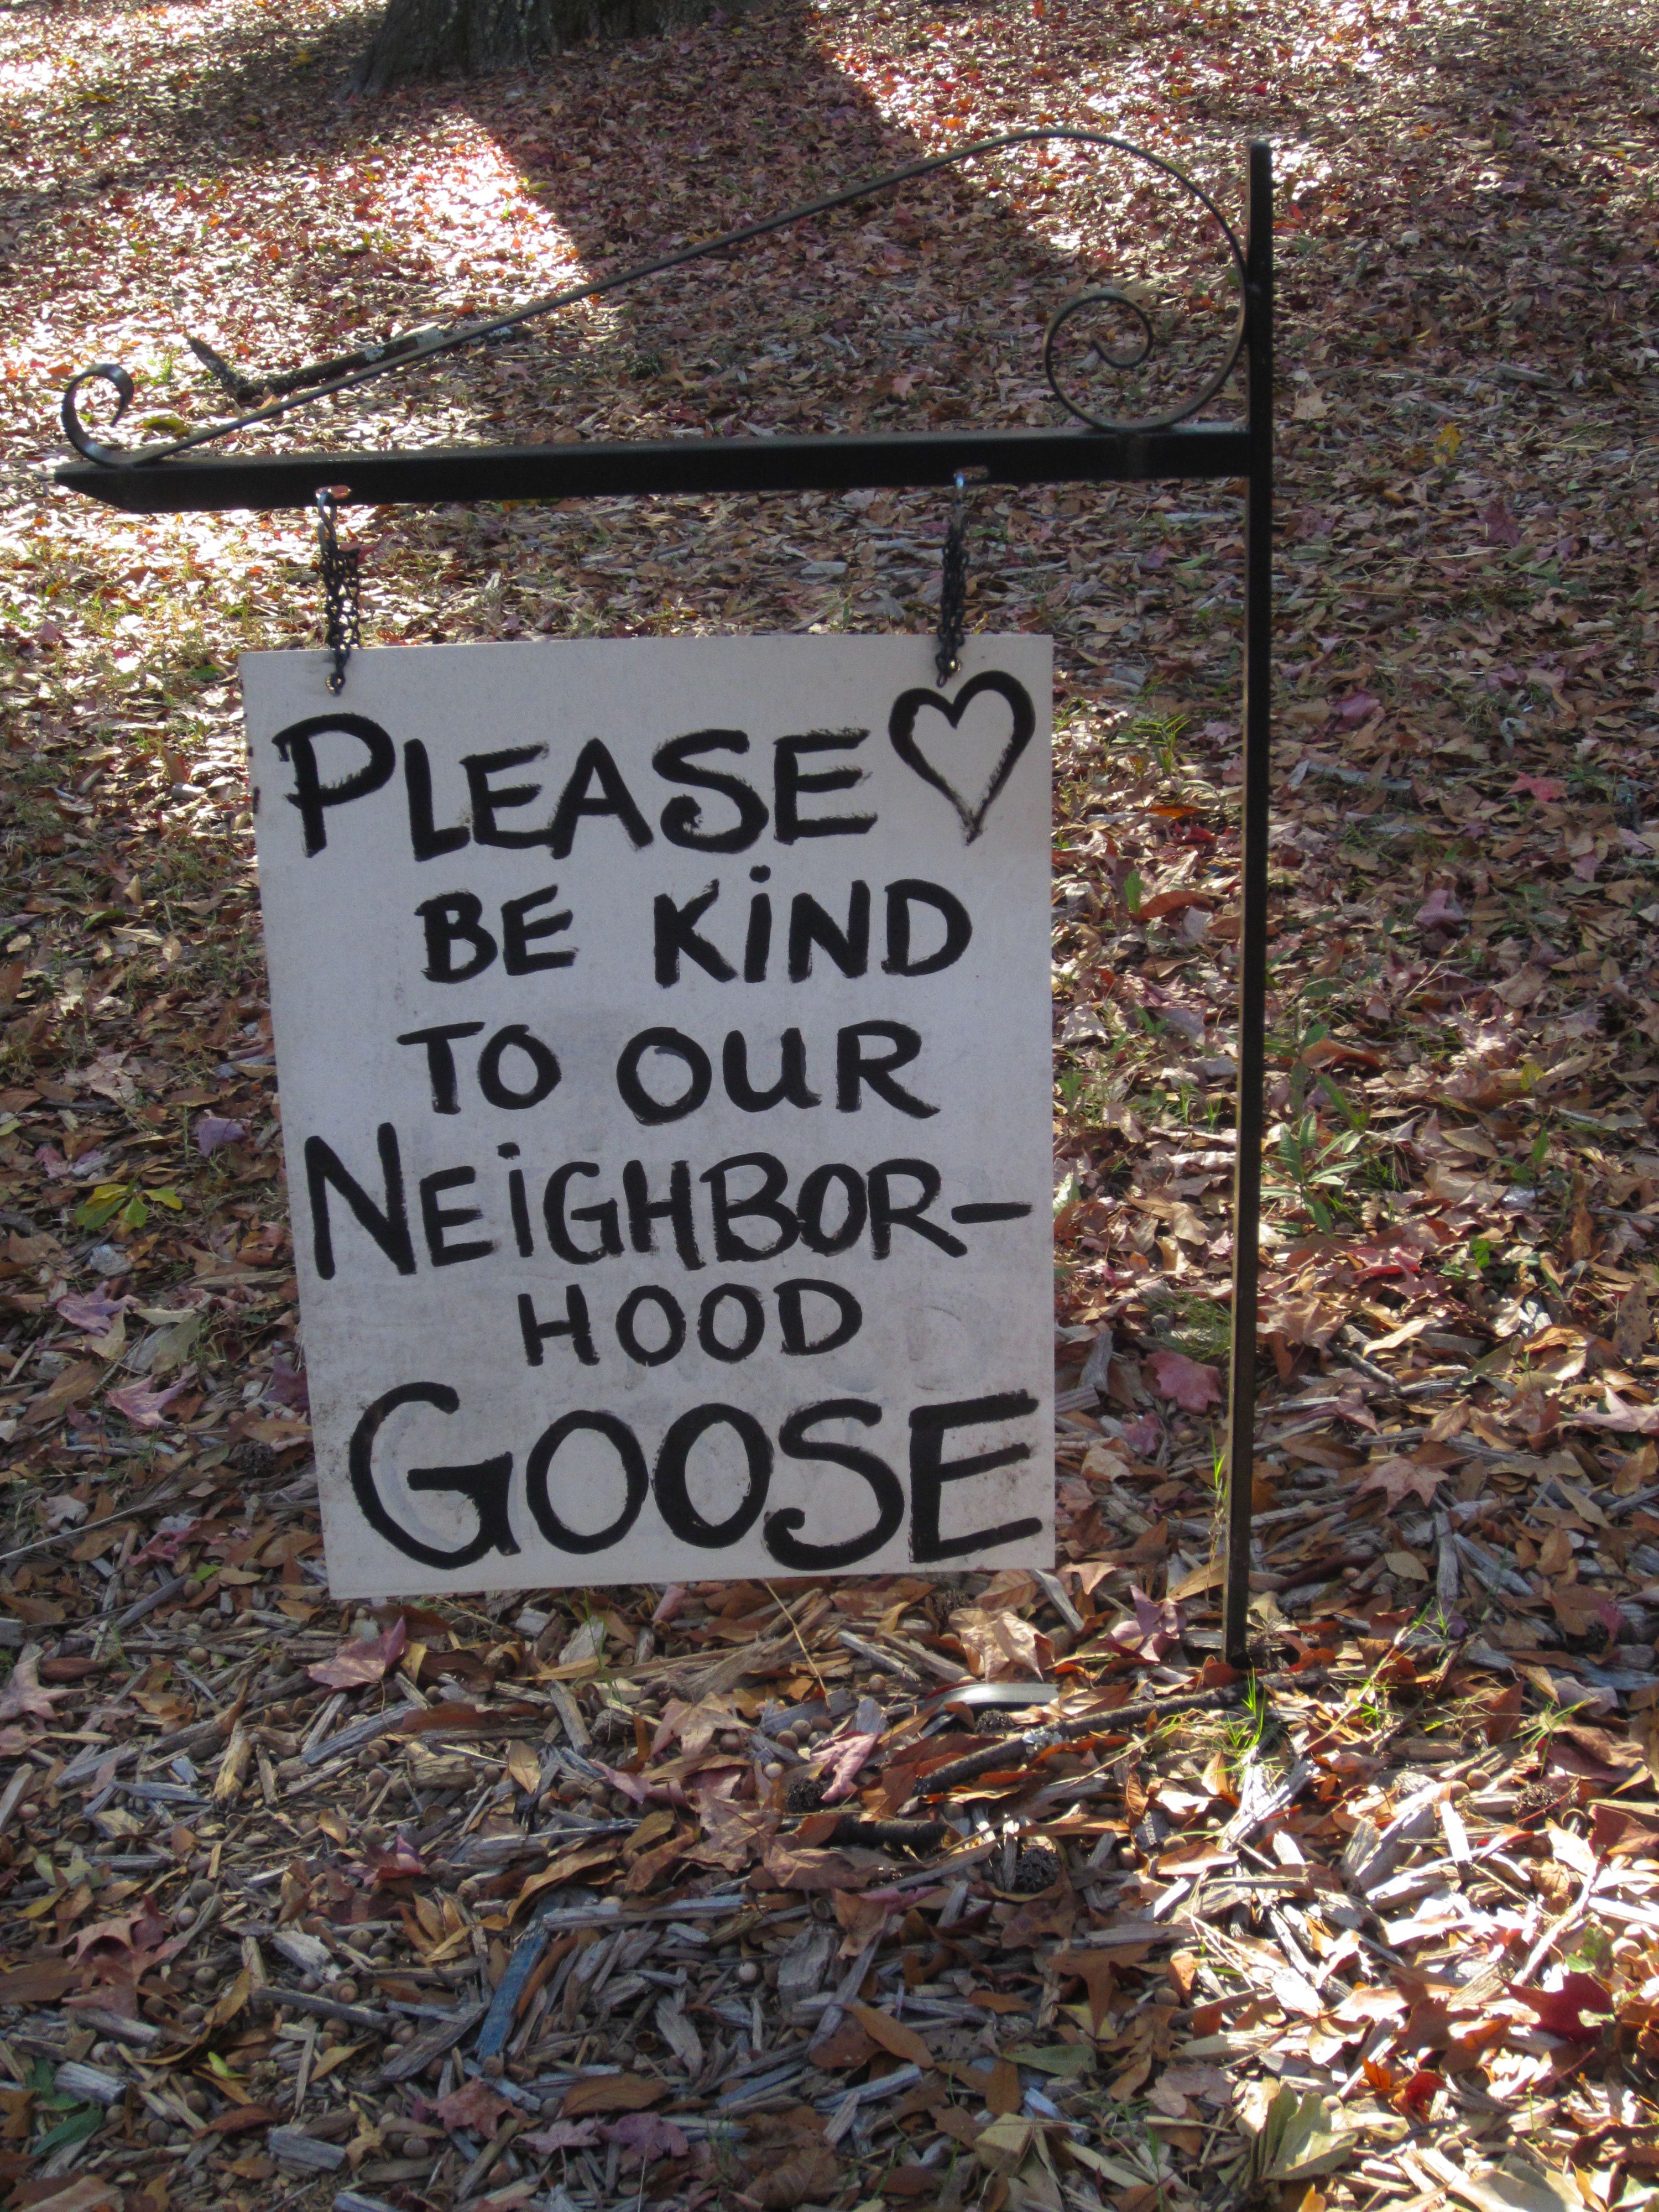 PLEASE
BE KiND
TO OUR
NEiGHBOR-
HOOD
GOOSE